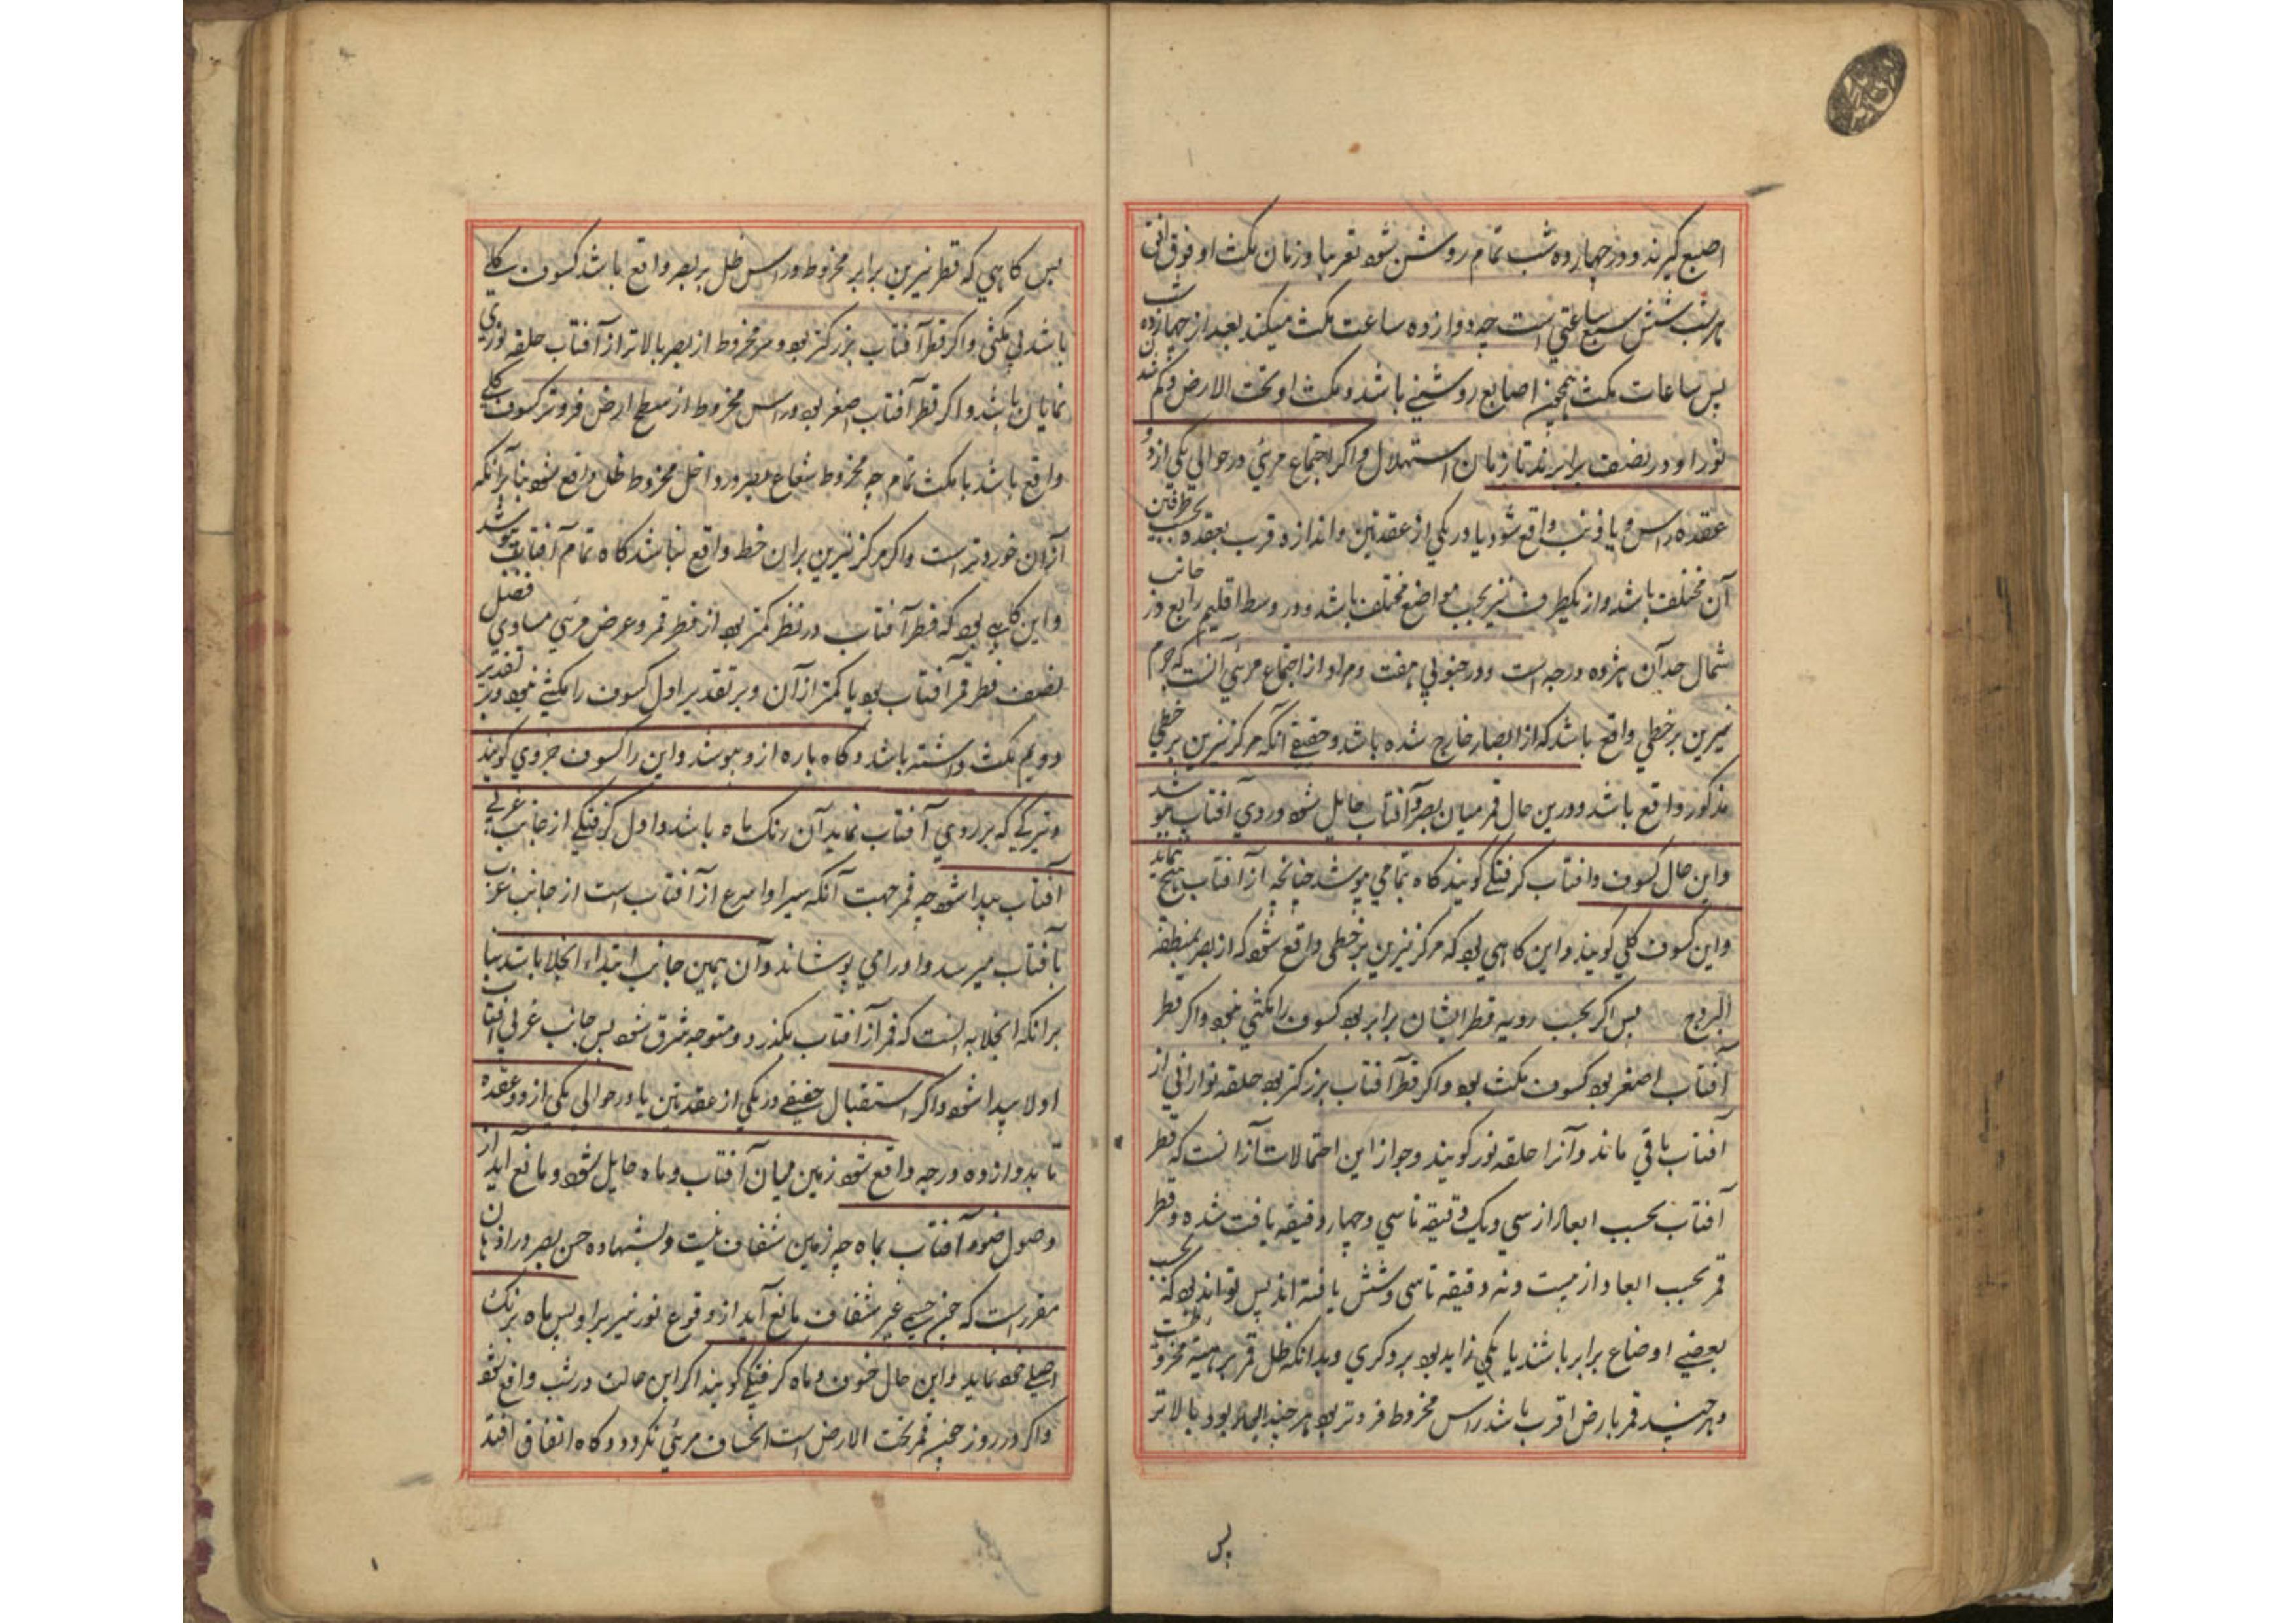 اصبع گیرند و در چهارده شب تمام روشن شود تقریبا و زمان مکث او فوق افق
هر شب شش سبع ساعتی است چه دوازده ساعت مکث میکند بعد از چهارده شب
پس ساعات مکث همچنین اصابع روشنی باشد و مکث او تحت الارض و کم شدن
نور او در نصف برابرند تا زمان استهلال و اگر اجتماع مرئی در حوالی یکی از دو
عقده راس و یا ذنب واقع شود یا در یکی از عقدتین و اندازه قرب بعقده بحسب طرفین
آن مختلف باشد و از یکطرف نیز بحسب مواضع مختلف باشد و در وسط اقلیم رابع در جانب
شمال حد آن هژده درجه است و در جنوبی هفت و مراد از اجتماع مرئی آنست که جرم
نیرین بر خطی واقع باشد که از ابصار خارج شده باشد و حقیقی آنکه مرکز نیرین بر خطی
مذکور واقع باشد و درین حال قمر میان بصر و آفتاب حایل شود و روی آفتاب بپوشد
و این حال کسوف و آفتاب گرفتگی گویند گاه بتمامی پوشد چنانچه از آفتاب هیچ نماند
و این کسوف کلی گویند و این گاهی بود که مرکز نیرین بر خطی واقع شود که از بصر بمنطقه
البروج پس اگر بحسب رویه قطر ایشان برابر بود کسوف را مکثی نبود و اگر قطر
آفتاب اصغر بود کسوف مکث بود و اگر قطر آفتاب بزرگتر بود حلقه نورانی از
آفتاب باقی ماند و آنرا حلقه نور گویند و جواز این احتمالات از آنست که قطر
آفتاب بحسب ابعاد از سی و یک دقیقه تا سی و چهار دقیقه یافت شده و قطر
قمر بحسب ابعاد از بیست و نه دقیقه تا سی و شش یافته اند پس تواند بود که بحسب
بعضی اوضاع برابر باشند یا یکی زاید بود بر دگری و بدانکه ظل قمر بر هیئت مخروط است
و هر چند قمر بارض اقرب باشد راس مخروط فروتر بود هر چند بود بالاتر
پس
پس گاهی که قطر نیرین برابر مخروط و راس ظل بر بصر واقع باشد کسوف کلی
باشد بی مکثی و اگر قطر آفتاب بزرگتر بود و سر مخروط از بصر بالاتر از آفتاب حلقه نوری
نمایان باشد و اگر قطر آفتاب اصغر بود و راس مخروط از سطح ارض فروتر کسوف کلی
واقع باشد با مکث تمام چه مخروط شعاع بصر در داخل مخروط ظل واقع شود بنا بر آنکه
از آن خوردتر است و اگر مرکز نیرین بر ان خط واقع نباشد گاه تمام آفتاب پوشد
و این گاهی بود که قطر آفتاب در نظر کمتر بود از قطر قمر و عرض مرئی مساوی فضل
نصف قطر قمر آفتاب بود یا کمتر از آن و بر تقدیر اول کسوف را مکثی نبود و بر تقدیر
دویم مکث داشته باشد و گاه پاره ازو بپوشد و این را کسوف جزوی گویند
و تیرگی که بر روی آفتاب نماید آن رنگ ماه باشد و اول گرفتگی از جانب غربی
آفتاب پیدا شود چه قمر جهت آنکه سیر او اسرع از آفتاب است از جانب غرب
بآفتاب میرسد و او را می پوشاند و آن همین جانب ابتداء انجلا باشد بنا
بر آنکه انجلا به اینست که قمر از آفتاب بگذرد و متوجه شرق شود پس جانب غربی آفتاب
اولا پیدا شود و اگر استقبال حقیقی در یکی از عقدتین یا در حوالی یکی از دو عقده
تا بدوازده درجه واقع شود زمین میان آفتاب و ماه حایل شود و مانع آید از
وصول ضوء آفتاب بماه چه زمین شفاف نیست و بشهاده حس بصر در اذهان
مقرر است که چنین جسمی غیر شفاف مانع آید از وقوع نور نیر برای پس ماه برنگ
اصلی خود نماید و این حال خسوف و ماه گرفتگی گویند اگر این حالت در شب واقع شود
و اگر در روز چون قمر تحت الارض است انخساف مرئی نگردد و گاه اتفاق افتد